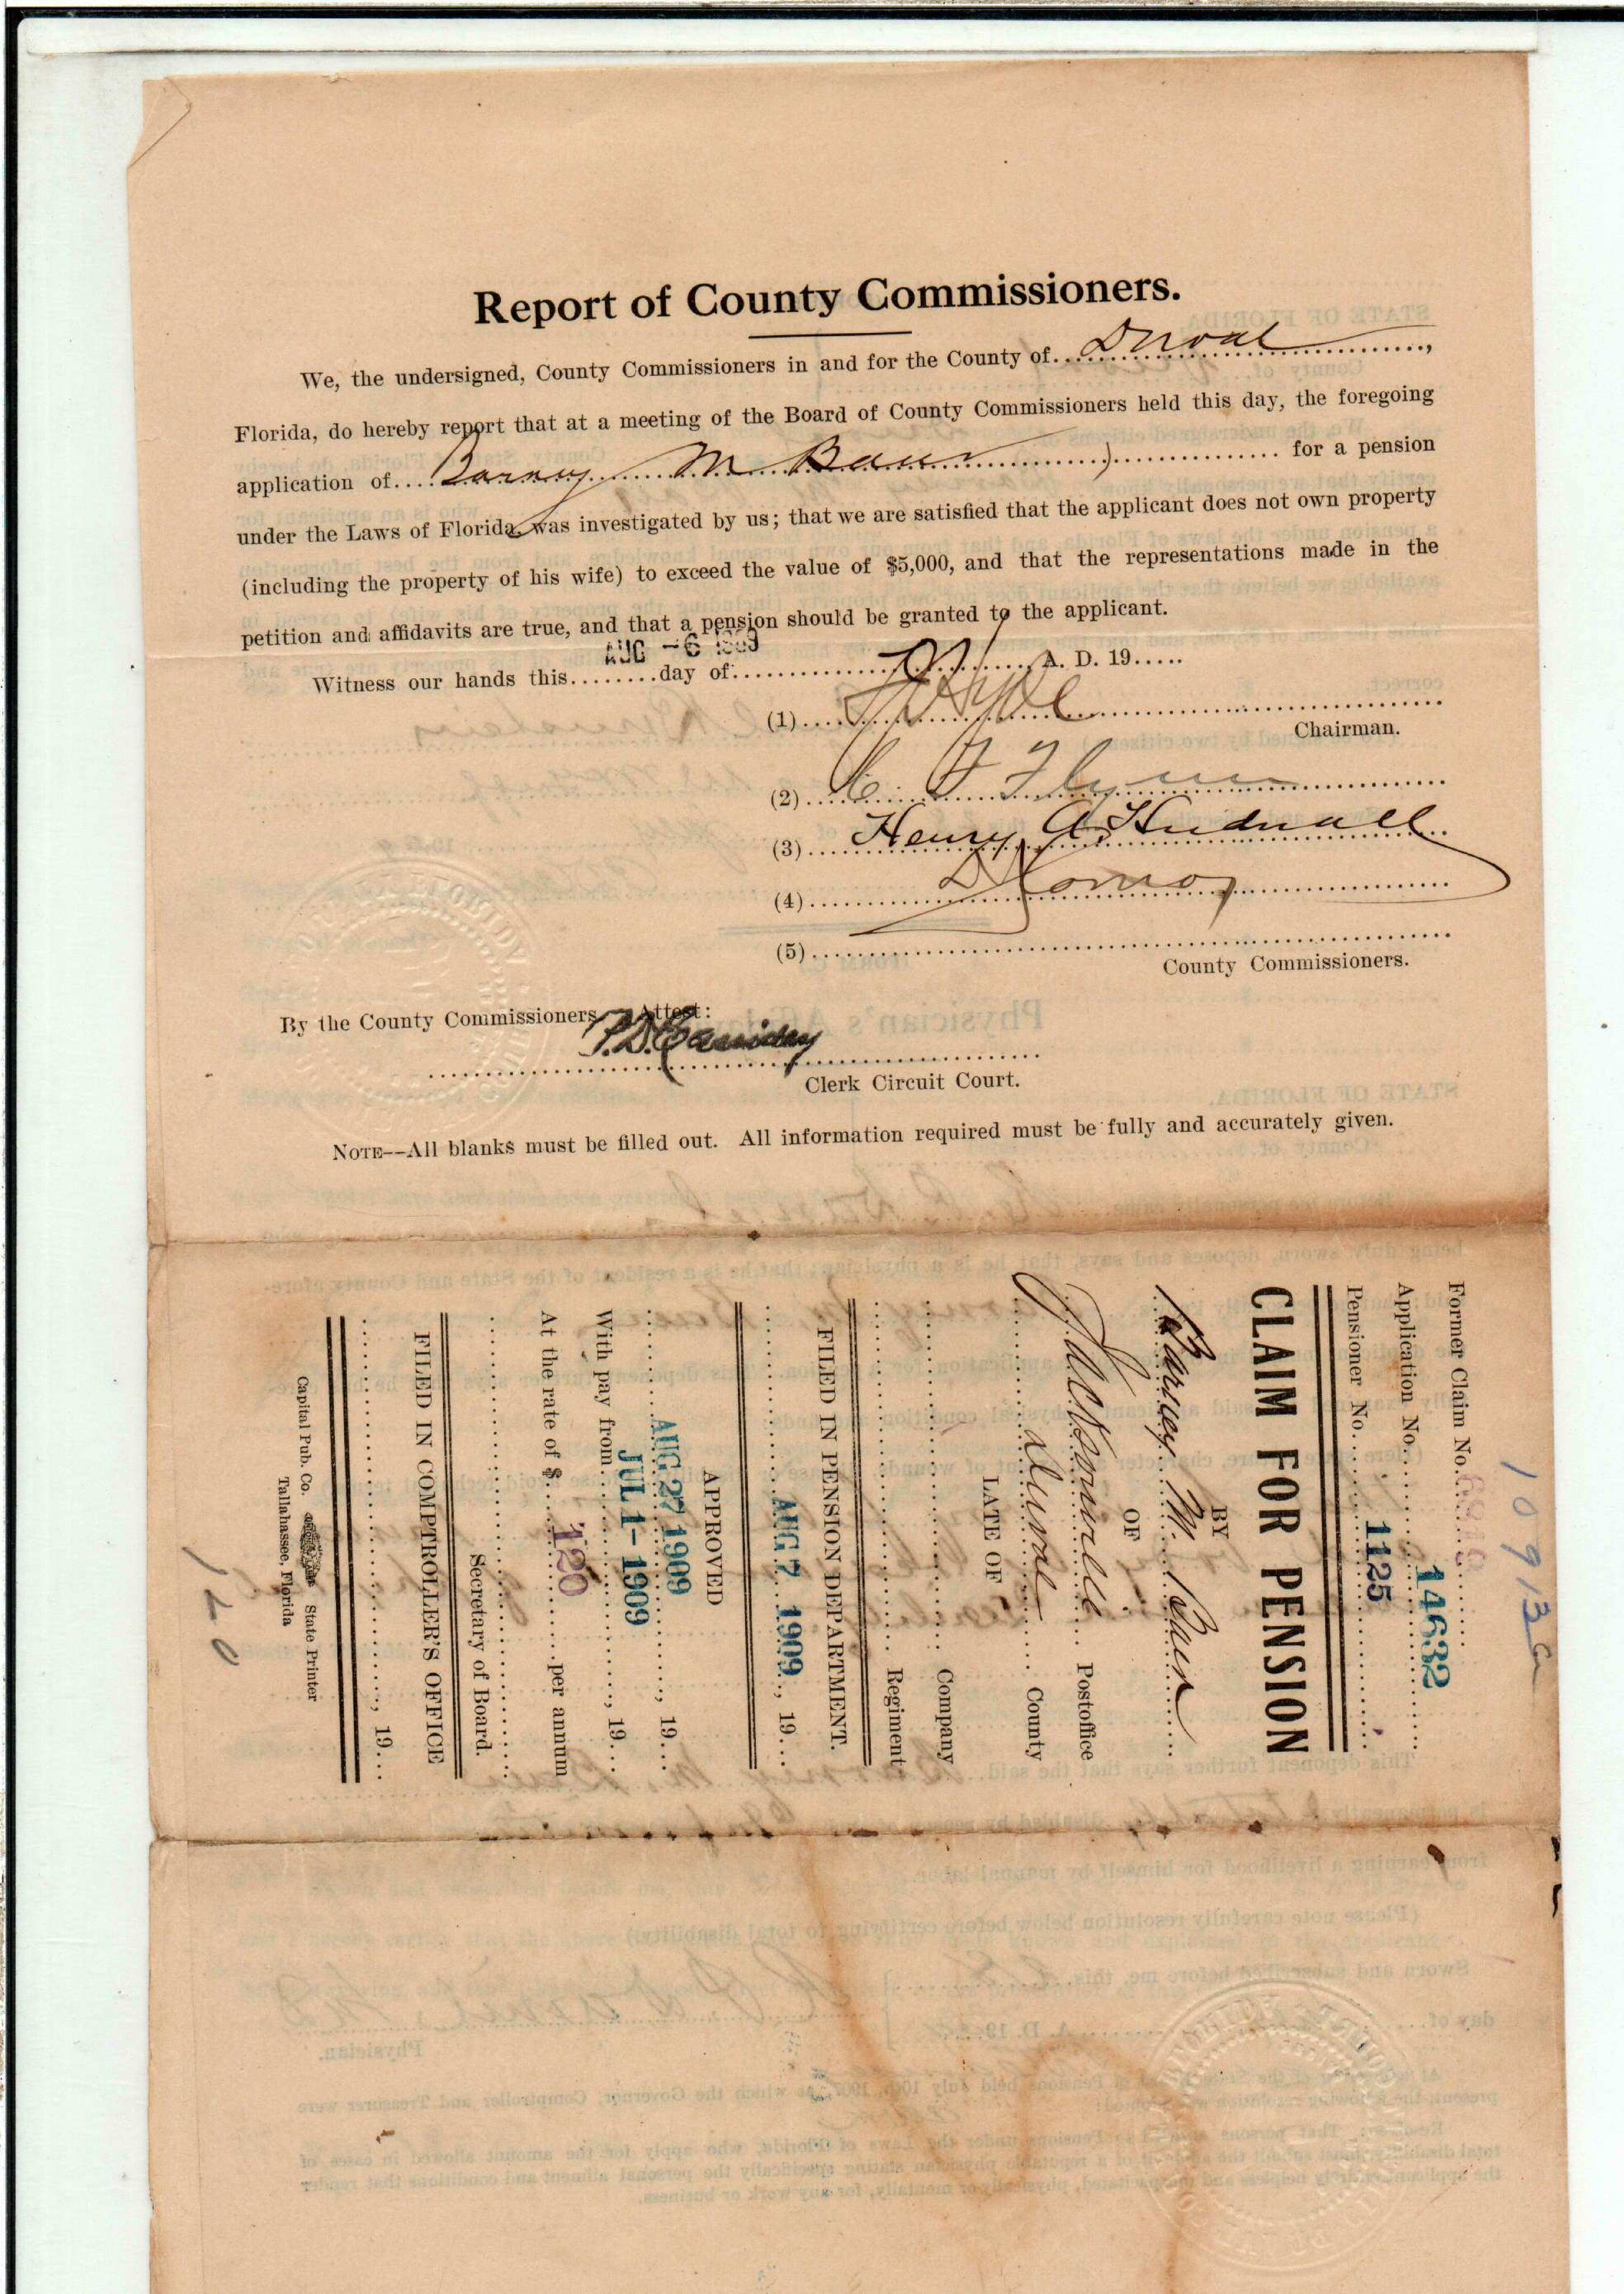 Report of County Commissioners.
We, the undersigned, County Commissioners in and for the County of....Duval....,
Florida, do hereby report that at a meeting of the Board of County Commissioners held this day, the foregoing
application of....Barney M Baur.... for a pension
under the Laws of Florida, was investigated by us; that we are satisfied that the applicant does not own property
(including the property of his wife) to exceed the value of $5,000, and that the representations made in the
petition and affidavits are true, and that a pension should be granted to the applicant.
AUG -6 1909
Witness our hands this........day of........A. D. 19.....
(1)
Chairman.
(2) C. F Flynn
(3) Henry A. Hudnall
(4)
(5)
County Commissioners.
By the County Commissioners. Attest:
P. D. Cassidey
Clerk Circuit Court.
NOTE--All blanks must be filled out. All information required must be fully and accurately given.
10913
Former Claim No.
Application No. 14632
Pensioner No. 1125
CLAIM FOR PENSION
BY
Barney M. Baur
OF
Jacksonville Postoffice
Duval County
LATE OF
Company
Regiment
FILED IN PENSION DEPARTMENT.
AUG 7 1909, 19....
APPROVED
AUG 27 1909, 19....
JUL 1- 1909
With pay from........, 19....
At the rate of $ 120 per annum
Secretary of Board.
FILED IN COMPTROLLER'S OFFICE
, 19....
Capital Pub. Co. State Printer
Tallahassee, Florida
120